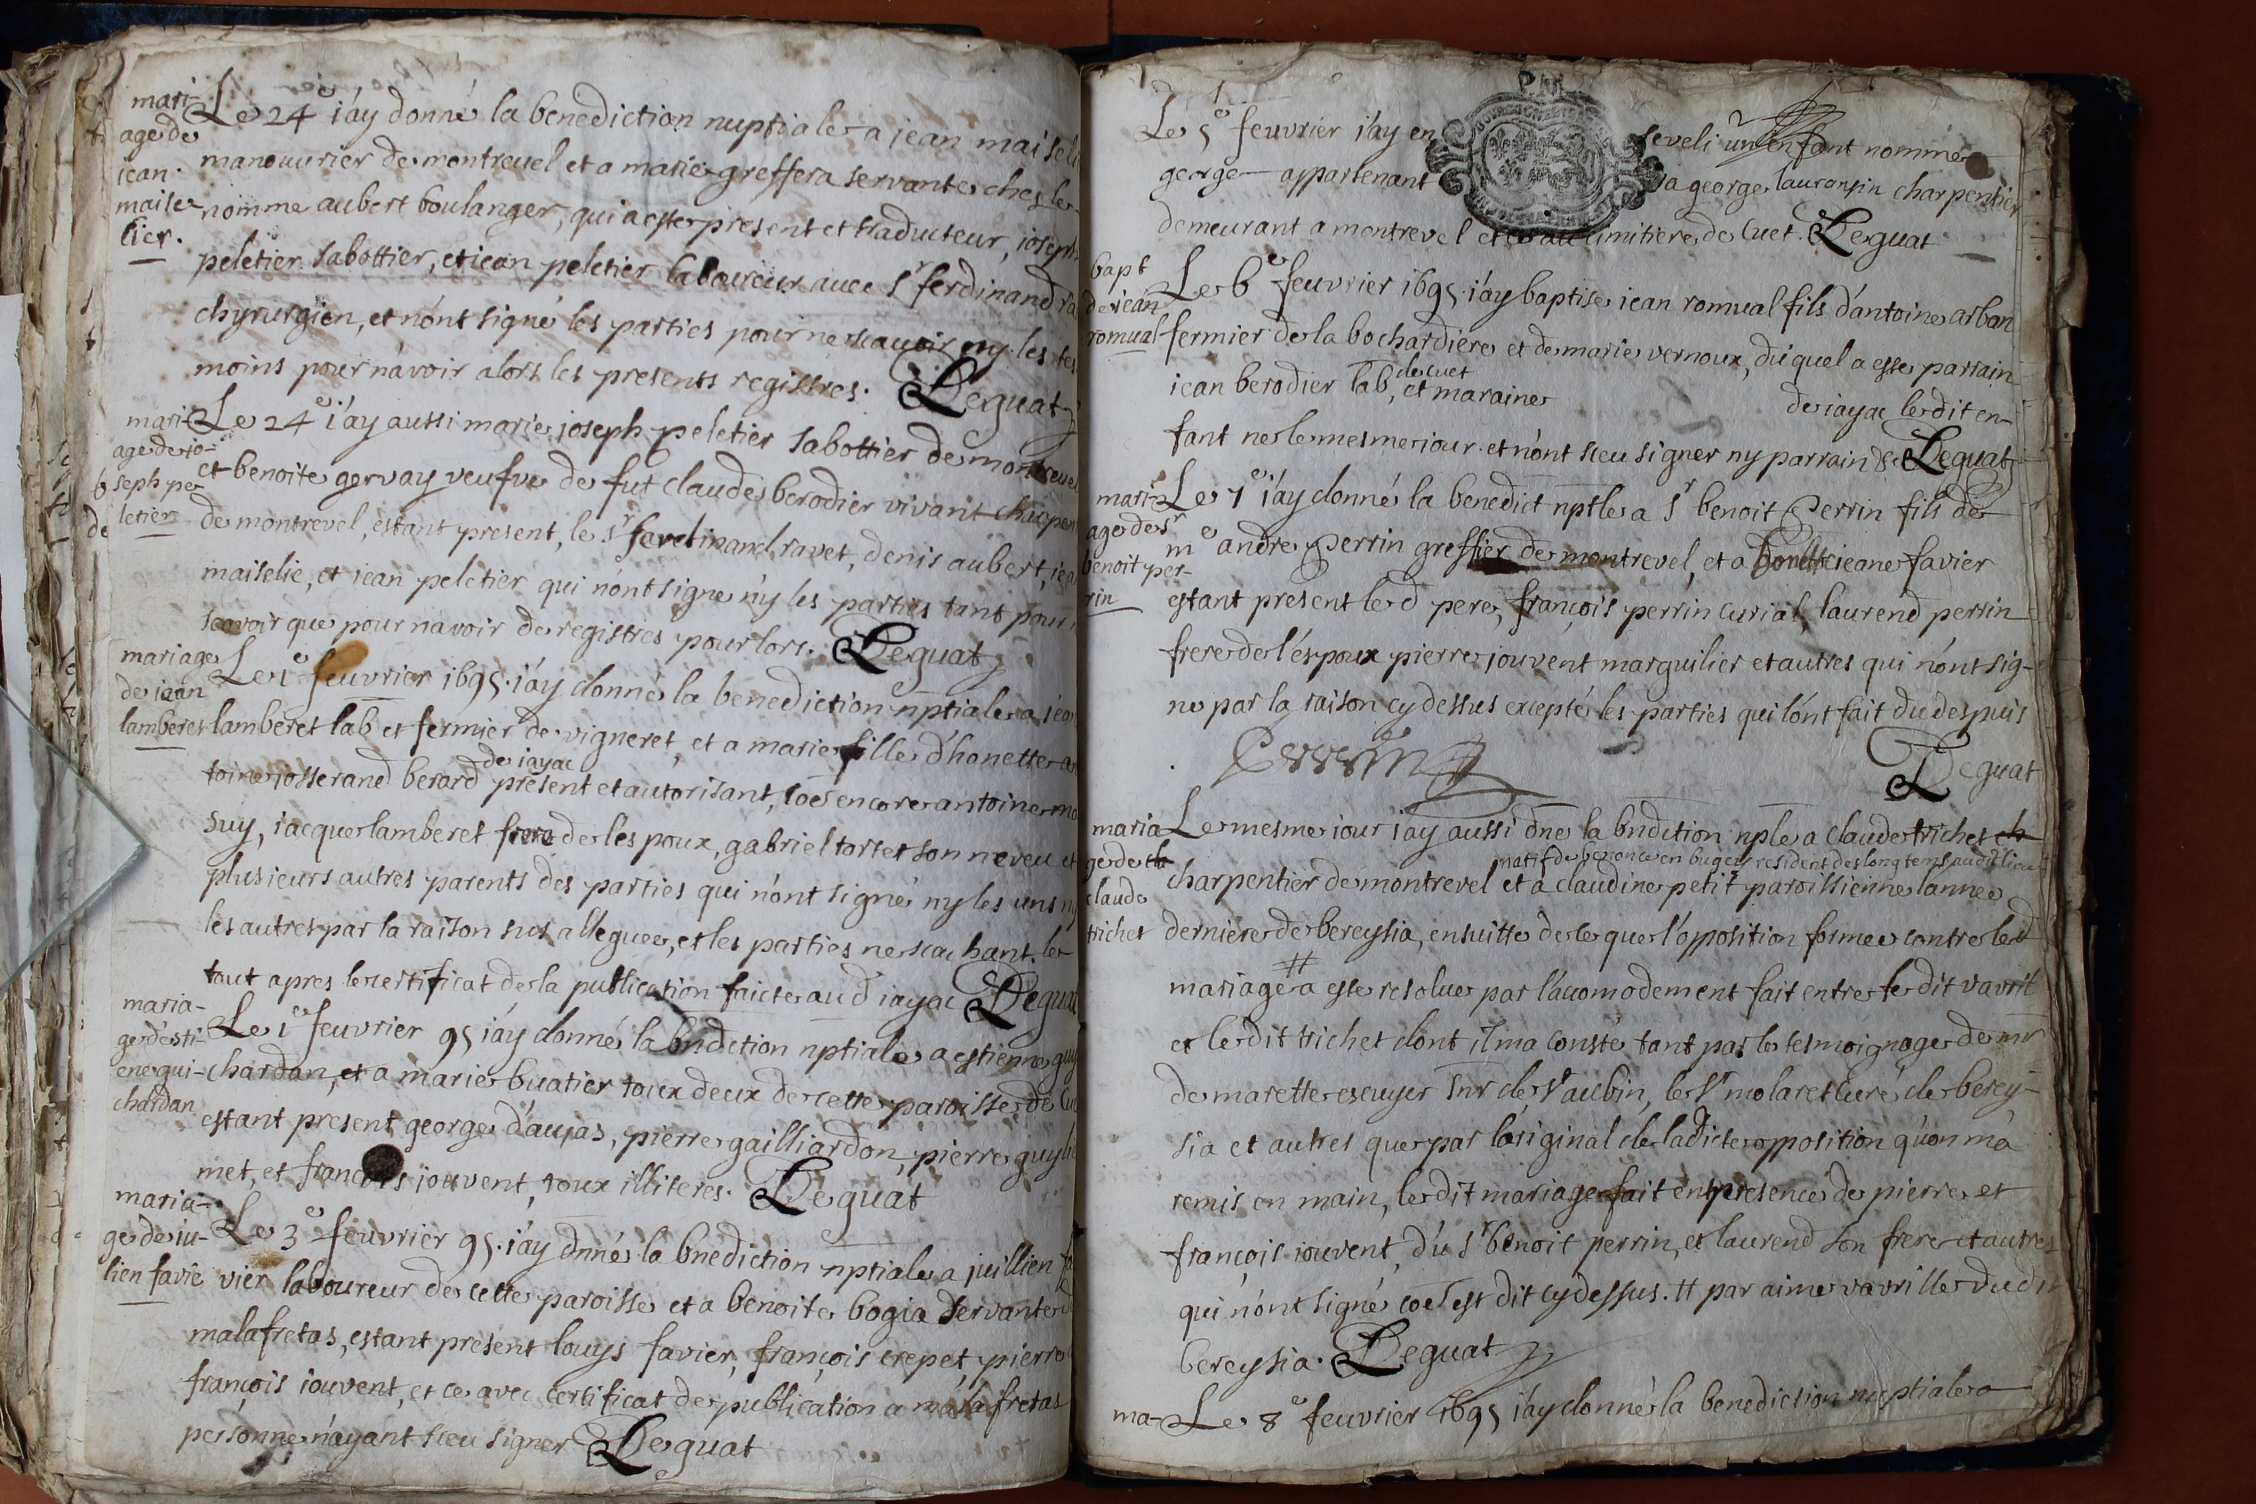 mari-
age de
jean
maise
lier.
Le 24e i'ay donné la benediction nuptiale a jean maiseli
manouurier de montreuel et a marie greffera servante ches le
nomme aubert boulanger, qui a este present et traducteur, joseph
peletier sabottier, et jean peletier laboureur auec Sr ferdinand ra
chyrurgien, et n'ont signé les parties pour ne scauoir ny les tes
moins pour n'avoir alors les presents registres. Deguat
mari-
age de jo-
seph pe
letier
Le 24e i'ay aussi marie joseph peletier sabottier de montreuel
et benoite gervay veufve de fut claude berodier vivant charpen
de montrevel, estant present, le Sr ferdinand ravet, denis aubert, jea
maiselie, et jean peletier qui n'ont signe n'y les parties tant pour
scavoir que pour n'avoir de registres pour lors. Deguat
mariage
de jean
lamberet
Le 1e feuvrier 1695. i'ay donné la benediction nptiale a jean
lamberet lab et fermier de vigneret, et a marie fille d'honette an
de jayac
toine josserand berard present et autorisant, coe encore antoine mo
suy, jacque lamberet frere de l'espoux, gabriel tortet son neveu et
plusieurs autres parents des parties qui n'ont signé ny les uns ny
les autres par la raison sus alleguee, et les parties ne scachant. le
tout apres le certificat de la publication faicte aud jayac Deguat
maria-
ge d'esti-
ene gui-
chardan
Le 1e feuvrier 95 i'ay donné la bndction nptiale a estienne guy
chardan, et a marie buatier toux deux de cette paroisse de Cu
estant present george d'aujas, pierre gailliardon, pierre guyli
met, et francois jouvent, toux illiteres. Deguat
maria-
ge de ju-
lien favie
Le 3e feuvrier 95. i'ay dnné la bnediction nptiale a juillien fa
vier laboureur de cette paroisse et a benoite bogia servante
malafretas, estant present louys favier, françois crepet, pierre
françois jouvent, et ce avec certificat de publication a malafretas
personne n'ayant sceu signer Deguat
Le 5e feuvrier i'ay en seveli un enfant nommé
george appartenant a george lauransin charpentier
demeurant a montrevel et ce au cimitiere de Cuet. Deguat
bapt
de jean
romual
Le 6e feuvrier 1695. i'ay baptise jean romual fils d'antoine arban
fermier de la bochardiere et de marie vernoux, duquel a este parrain
de cuet
jean berodier lab, et maraine de jayac le dit en-
fant ne le mesme jour. et n'ont sceu signer ny parrain &c Deguat
mari-
age de Sr
benoit per-
rin
Le 7e i'ay donné la benedict nptle a Sr benoit Perrin fils de
me andre Perrin greffier de montrevel, et a jeane favier
estant present led pere, françois perrin curial, laurend perrin
frere de l'époux pierre jouvent marguilier et autres qui n'ont sig-
ne par la raison cy dessus excepté les parties qui l'ont fait du despuis
Perrin
Deguat
maria
ge de ch
claude
trichet
Le mesme jour i'ay aussi dne la bndction nple a claude trichet ch
natif de benonce en bugey resident des long temps audit lieu
charpentier de montrevel et a claudine petit paroissienne lannee
derniere de bereysia, ensuitte de ce que l'opposition formee contre led
mariage # a este resolue par l'acomodement fait entre le dit vavril
et le dit trichet dont il ma consté tant par le tesmoignage de mr
de marette escuyer Snr de St aubin, le Sr molaret curé de berey-
sia et autres que par l'original de ladicte opposition qu'on m'a
remis en main, le dit mariage fait en presence de pierre et
françois jouvent, du Sr benoit perrin, et laurend son frere et autres
qui n'ont signé coe est dit cy dessus. # par aime vavrille dud
bereysia. Deguat
ma-
Le 8e feuvrier 1695 i'ay donné la benediction nuptiale a